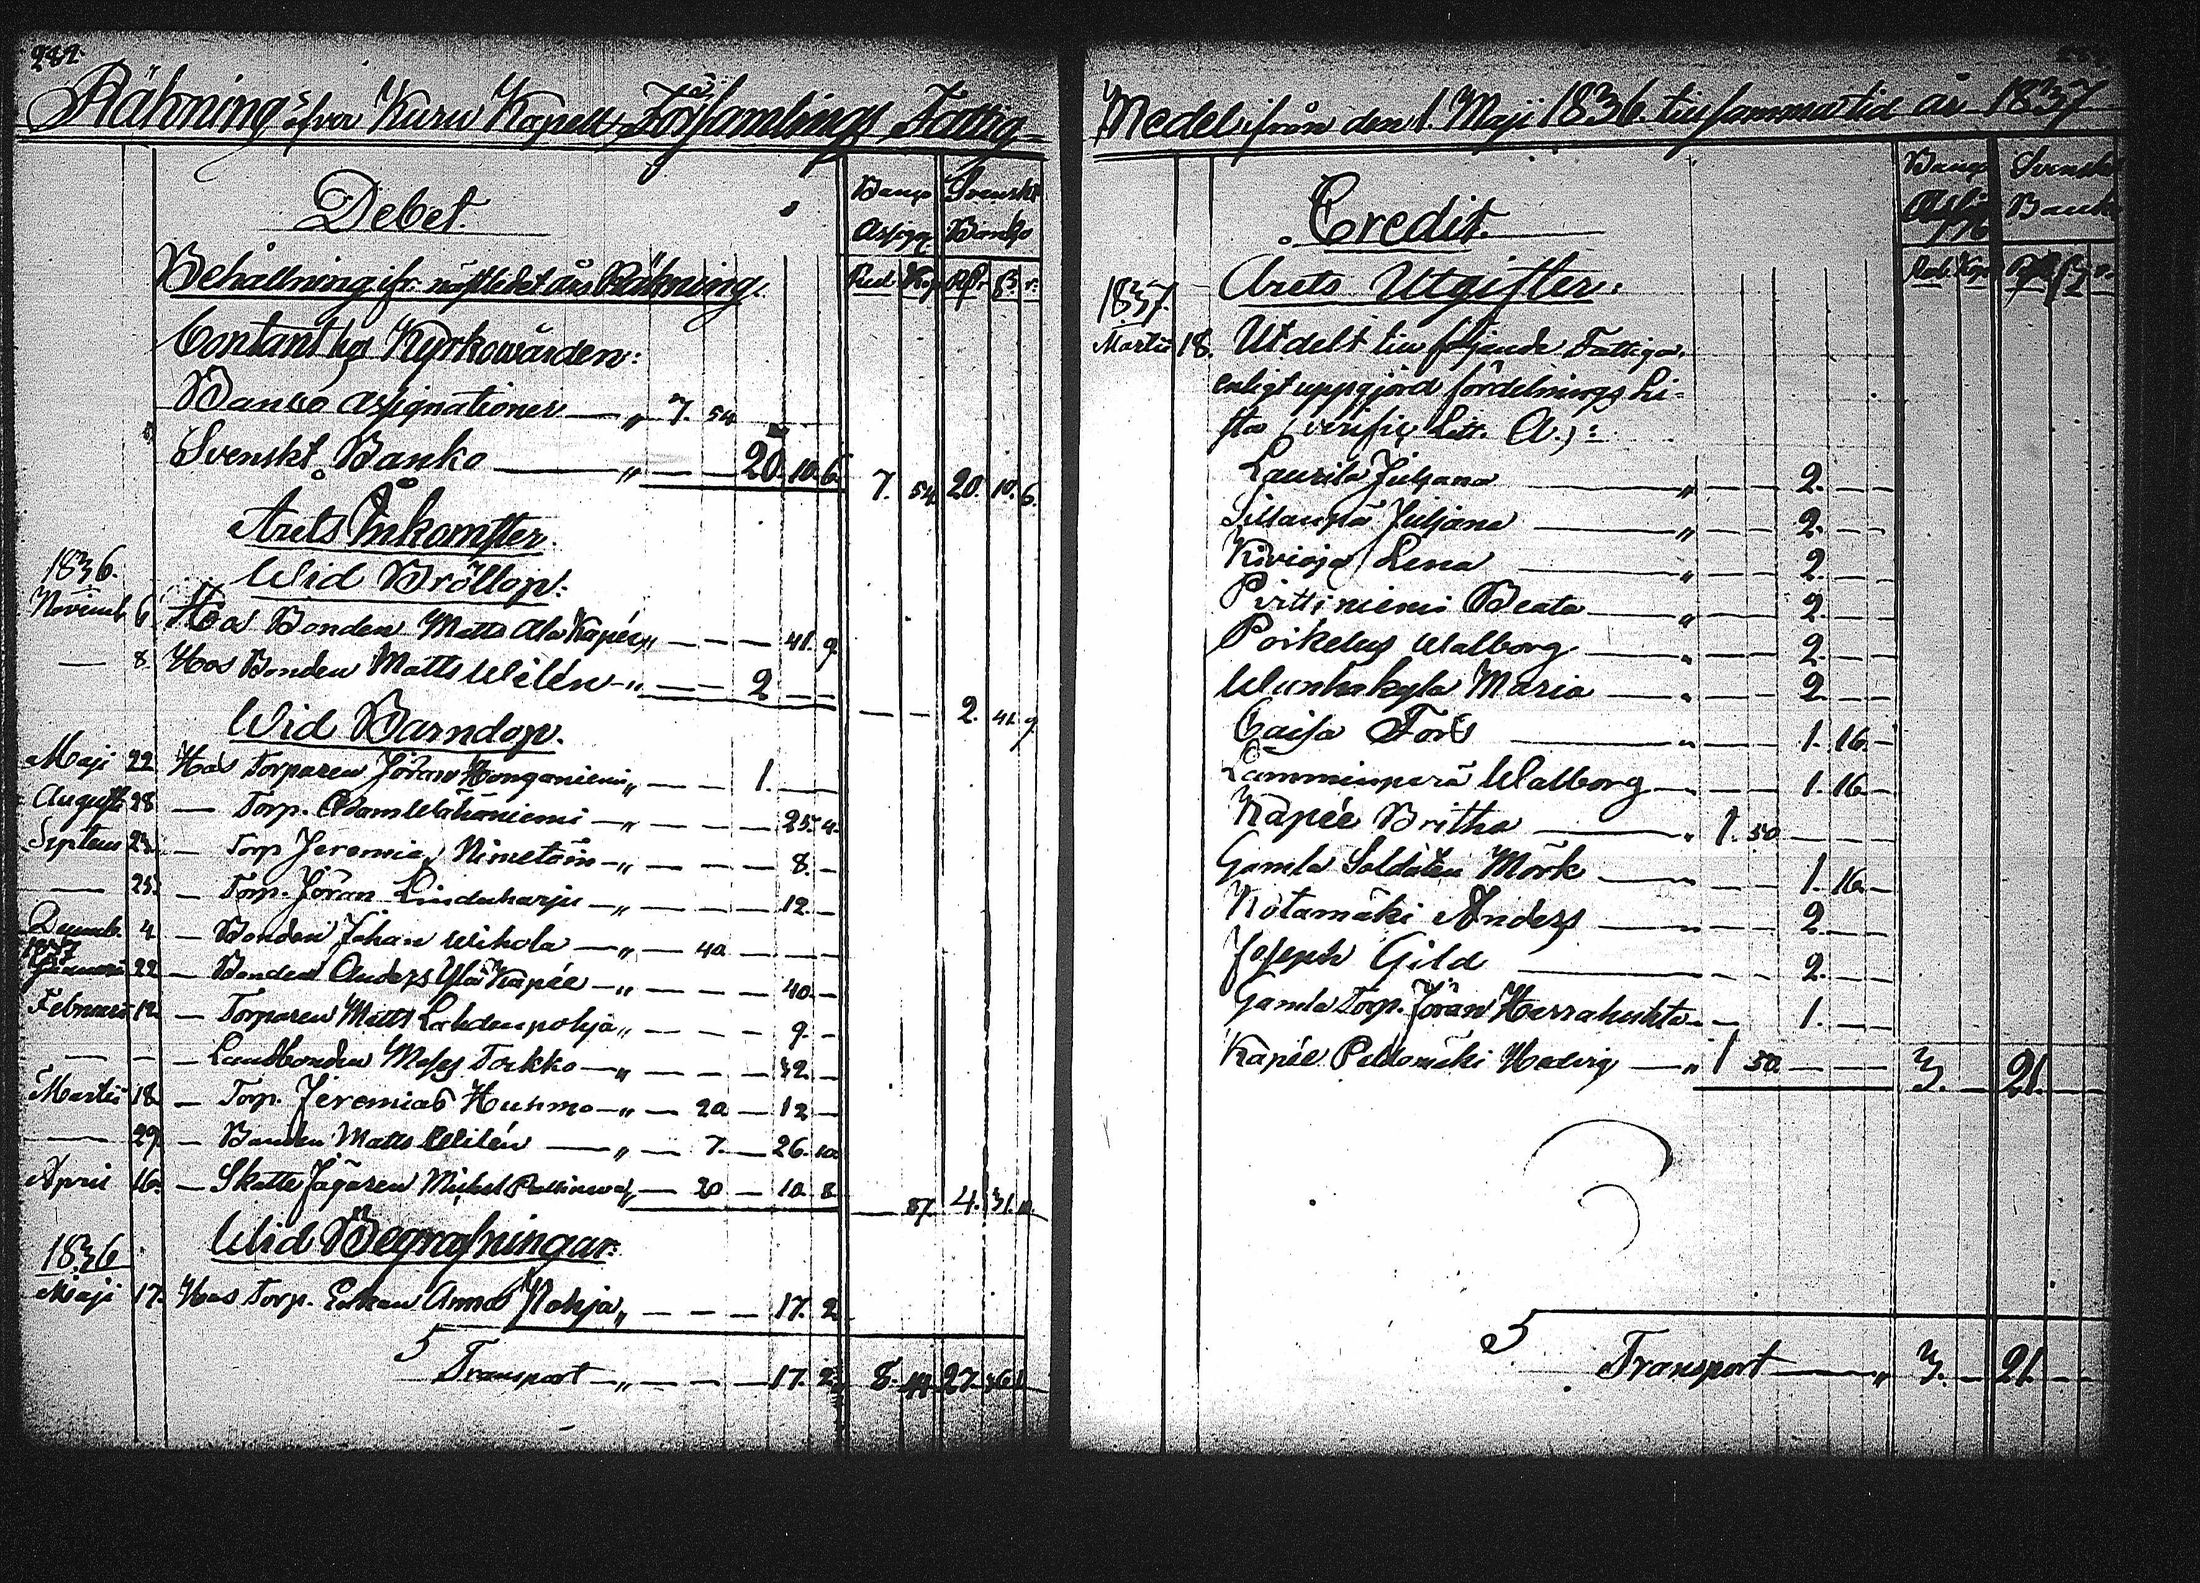 282.
Räkning öfver Kuru Kapells Församlings Fattig-
Debet.
Banco Assign. Svenskt Banko
Rub. Kop. Rdr. ß. r.
Behållning ifr. näst ledet års Räkning.
Contant hos Kyrkowärden:
Banco Assignationer — „ 7. 54
Svenskt Banko — „ — — 20. 10. 6. 7. 54 20. 10. 6.
Årets Inkomster.
Wid Bröllop:
1836.
Novemb. 6. Hos Bonden Matts Ala Kapée „ — — — 41. 9.
— 8. Hos Bonden Matts Wilén — „ — — 2 — — — — 2. 41. 9
Wid Barndop.
Maji 22 Hos Torparen Jöran Honganiemi „ — — 1. — —
Augusti 28 — Torp. Adam Wähäniemi — „ — — — 25. 4.
Septem 23. — Torp. Jeremias Nimetöin — „ — — — 8. —
— 25. — Torp. Jöran Linduharju — „ — — — 12. —
Decemb. 4. — Bonden Johan Wihola — „ — 40 — — —
1837
Januarii 22 — Bonden Anders Ylä Kapée — „ — — — 40. —
Februarii 12. — Torparen Matts Lahdenpohja „ — — — 9. —
— — — Landbonden Moses Torkko — „ — — — 32. —
Martii 18. — Torp. Jeremias Huhmo — „ — 20 — 12 —
— 29. — Bonden Matts Wilén — „ — 7. — 26. 10.
April 16. — Skatte Jägaren Michel „ — 20 — 10. 8. — 87. 4. 31. 10.
Wid Begrafningar:
1836
Maji 17. Hos Torp. Enkan Anna Pohja „ — — — 17. 2.
5
Transport — „ — — — 17. 2. 8. 41. 27. 36. 1
Medel ifrån den 1. Maji 1836. till samma tid år 1837
Credit.
Banco Assig. Svenskt Banko
Rub. Kop. Rdr. ß. r.
Årets Utgifter:
1837.
Martii 18. Utdelt till följande Fattiga,
enligt uppgjord fördelnings Li-
sta (verific. Litt. A.):
Laurila Juljana — „ — — 2. — —
Sillanpä Juljana — „ — — 2. — —
Kivioja Lena — „ — — 2. — —
Pirttiniemi Beata — „ — — 2. — —
Poikelus Walborg — „ — — 2. — —
Wanhakylä Maria — „ — — 2. — —
Caisa Fors — „ — — 1. 16. —
Lamminperä Walborg — — — 1. 16. —
Kapée Britha — „ 1. 50. — — —
Gamla Soldaten Mörk — — — 1. 16. —
Kotamäki Anders — — — 2. — —
Joseph Gild — — — 2. — —
Gamla Torp. Jöran Herrahuhta — — 1. — —
Kapée Peldomäki Hedvig — „ 1 50. — — — 3. — 21. — —
5
Transport — „ 3. — 21. — —